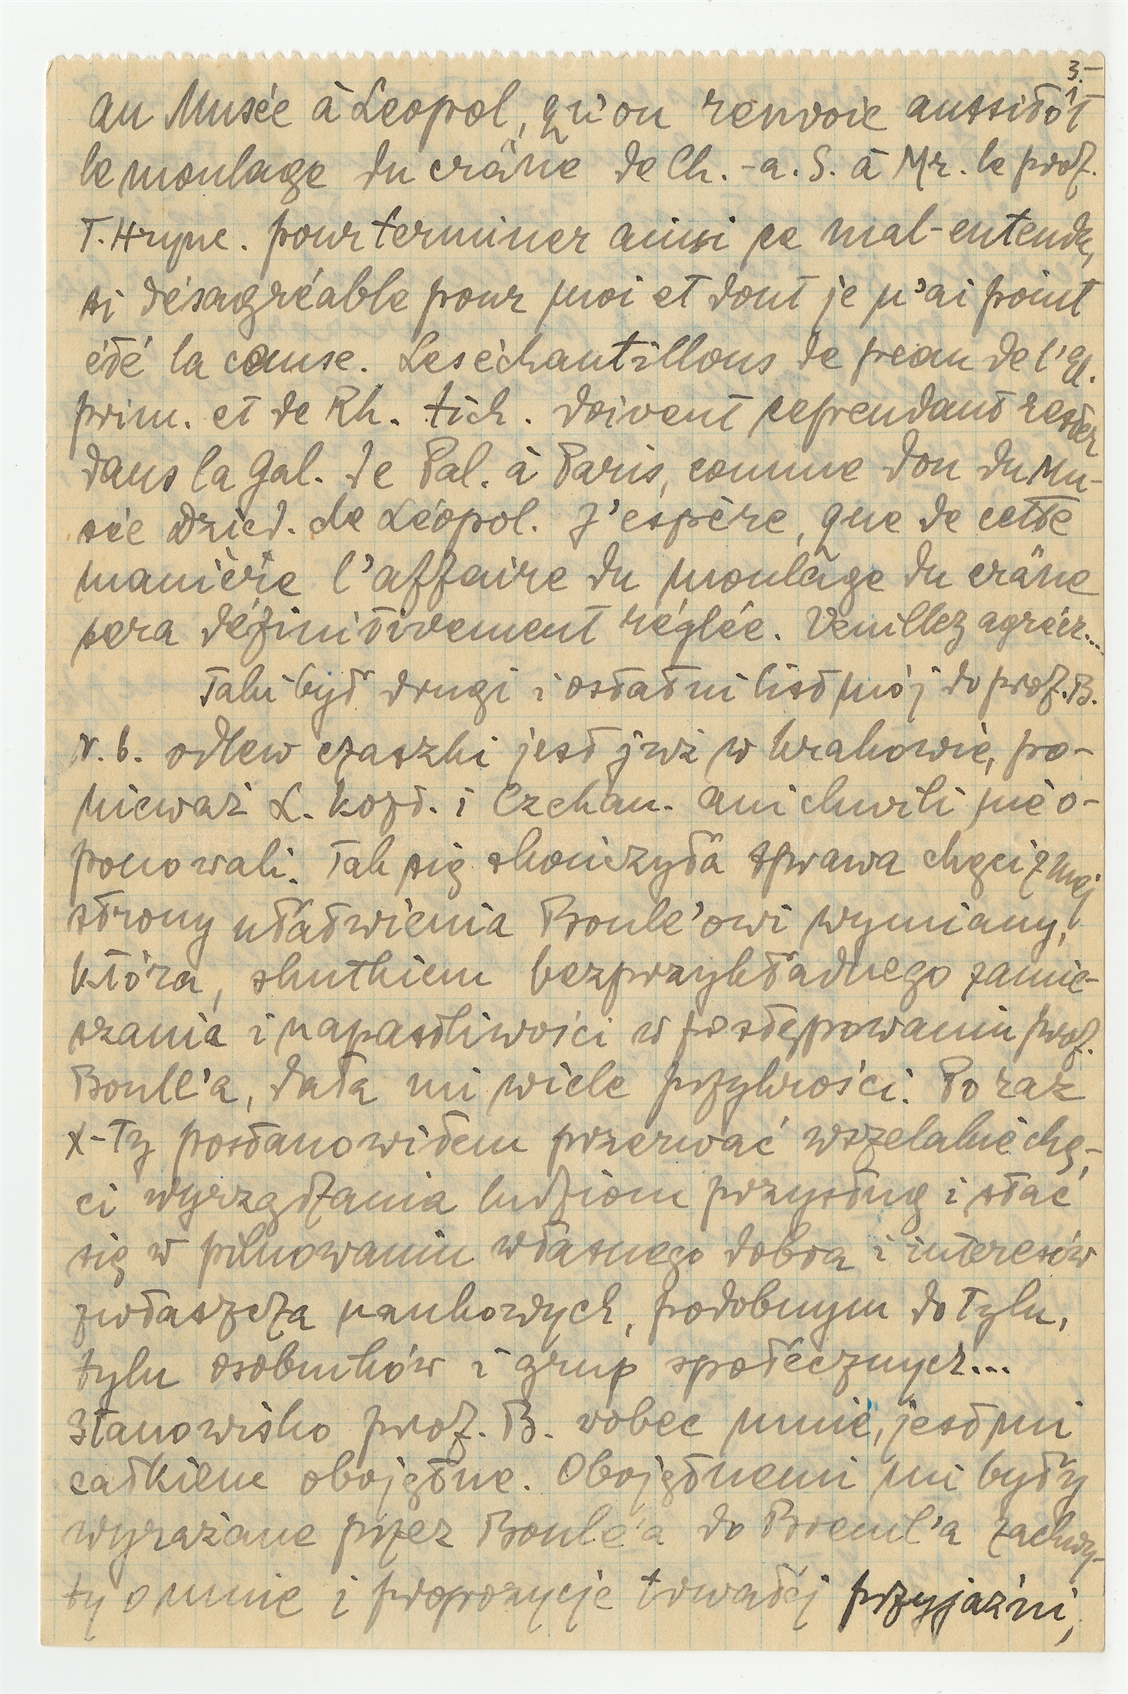 3.–
au Musée à Leopol, qu'on renvoie aussitôt
le moulage du crâne de Ch.-a.S. à Mr. le prof.
T. Hryne. pour terminer ainsi ce mal-entendu,
si désagréable pour moi et dont je n'ai point
été la cause. Les échantillons de peau de l'El.
prim. et de Rh. tich. doivent cependant rester
dans la Gal. de Pal. à Paris, comme don du Mu-
sée Dzied. de Léopol. J'espère, que de cette
manière l'affaire du moulage du crâne
sera définitivement réglée. Veuillez agréer...
Taki był drugi i ostatni list mój do prof. B.
N.b. odlew czaszki jest już w Krakowie, po-
nieważ L. Kozł. i Czekan. ani chwili nie o-
ponowali. Tak się skończyła sprawa chęci z mej
strony ułatwienia Boule'owi wymiany,
która, skutkiem bezprzykładnego zamie-
szania i napastliwości w postępowaniu prof.
Boule'a, dała mi wiele przykrości. Po raz
x-ty postanowiłem przerwać wszelakie chę-
ci wyrządzania ludziom przysług i stać
się w pilnowaniu własnego dobra i interesów
zwłaszcza naukowych, podobnym do tylu,
tylu osobników i grup społecznych...
Stanowisko prof. B. wobec mnie, jest mi
całkiem obojętne. Obojętnemi mi były
wyrażane przez Boule'a do Breuil'a zachwy-
ty o mnie i propozycje trwałej przyjaźni,